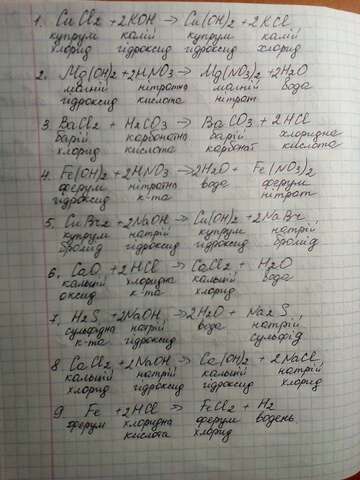 1. CuCl2 + 2KOH → Cu(OH)2 + 2KCl
купрум калій купрум калій
хлорид гідроксид гідроксид хлорид
2. Mg(OH)2 + 2HNO3 → Mg(NO3)2 + 2H2O
магній нітратна магній вода
гідроксид кислота нітрат
3. BaCl2 + H2CO3 → BaCO3 + 2HCl
барій карбонатна барій хлоридна
хлорид кислота карбонат кислота
4. Fe(OH)2 + 2HNO3 → 2H2O + Fe(NO3)2
ферум нітратна вода ферум
гідроксид к-та нітрат
5. CuBr2 + 2NaOH → Cu(OH)2 + 2NaBr
купрум натрій купрум натрій
бромід гідроксид гідроксид бромід
6. CaO + 2HCl → CaCl2 + H2O
кальцій хлоридна кальцій вода
оксид к-та хлорид
7. H2S + 2NaOH → 2H2O + Na2S
сульфідна натрій вода натрій
к-та гідроксид сульфід
8. CaCl2 + 2NaOH → Ca(OH)2 + 2NaCl
кальцій натрій кальцій натрій
хлорид гідроксид гідроксид хлорид
9 Fe + 2HCl → FeCl2 + H2
ферум хлоридна ферум водень
кислота хлорид